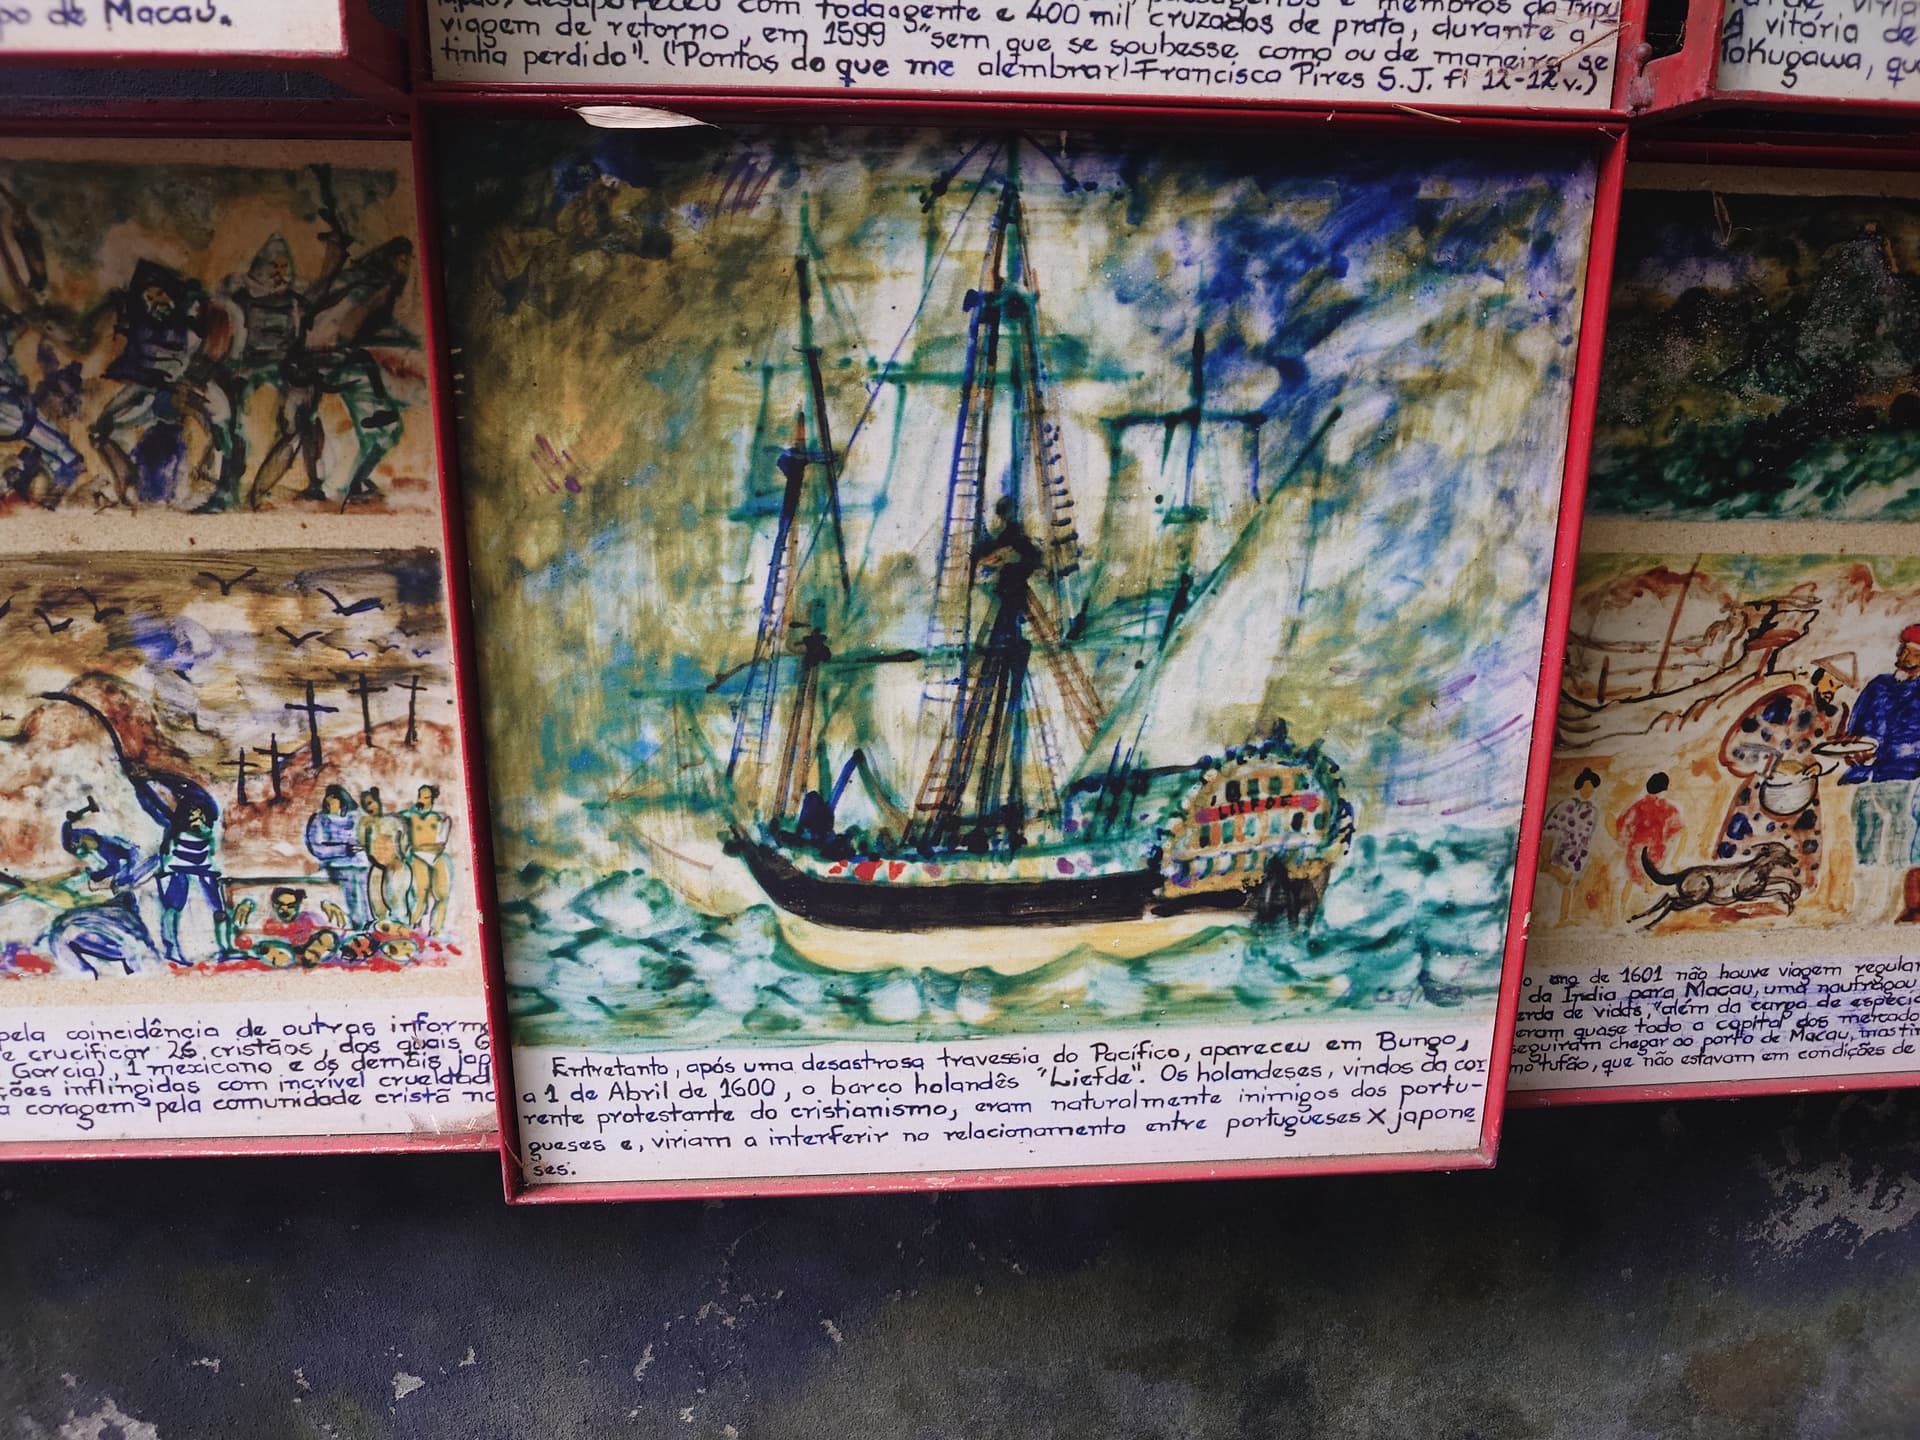 po de Macau.
desapareceu com toda a gente e 400 mil cruzados de prata, durante a
viagem de retorno, em 1599 "sem que se soubesse como ou de maneira se
tinha perdido". ("Pontos do que me alembrar"-Francisco Pires S.J. fl 12-12v.)
A vitória de
Tokugawa, qu
LIEFDE
pela coincidência de outras inform
e crucificar 26 cristãos, dos quais 6
Garcia), 1 mexicano e os demais jap
ções inflingidas com incrível crueldad
a coragem pela comunidade cristã no
Entretanto, após uma desastrosa travessia do Pacífico, apareceu em Bungo,
a 1 de Abril de 1600, o barco holandês "Liefde". Os holandeses, vindos da cor
rente protestante do cristianismo, eram naturalmente inimigos dos portu-
gueses e, viriam a interferir no relacionamento entre portugueses X japone
ses.
o ano de 1601 não houve viagem regular
da Índia para Macau, uma naufragou
erda de vidas, "além da carga de especia
eram quase todo o capital dos mercado
seguiram chegar ao porto de Macau, mas tin
mo tufão, que não estavam em condições de